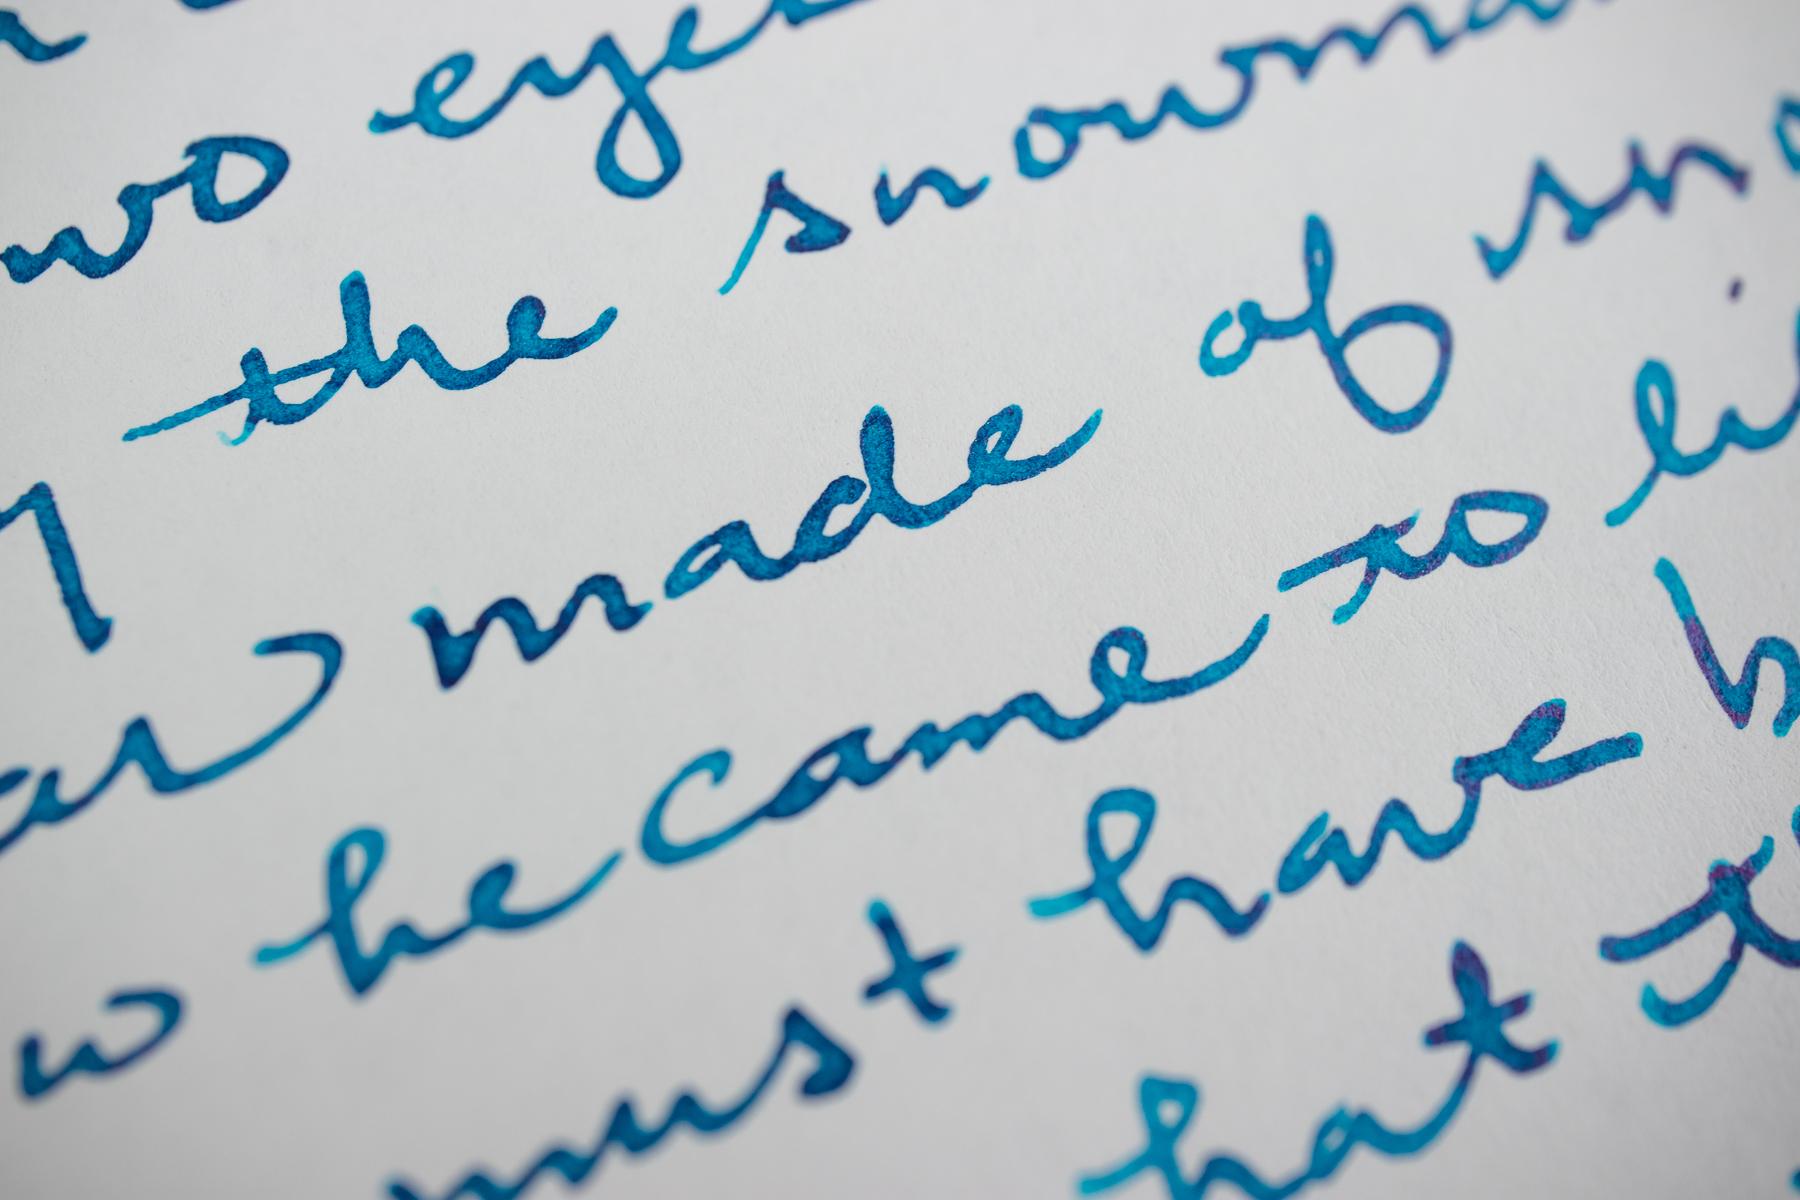 wo eyes
the snowma
aw made of sno
w he came to li
must have b
hat t